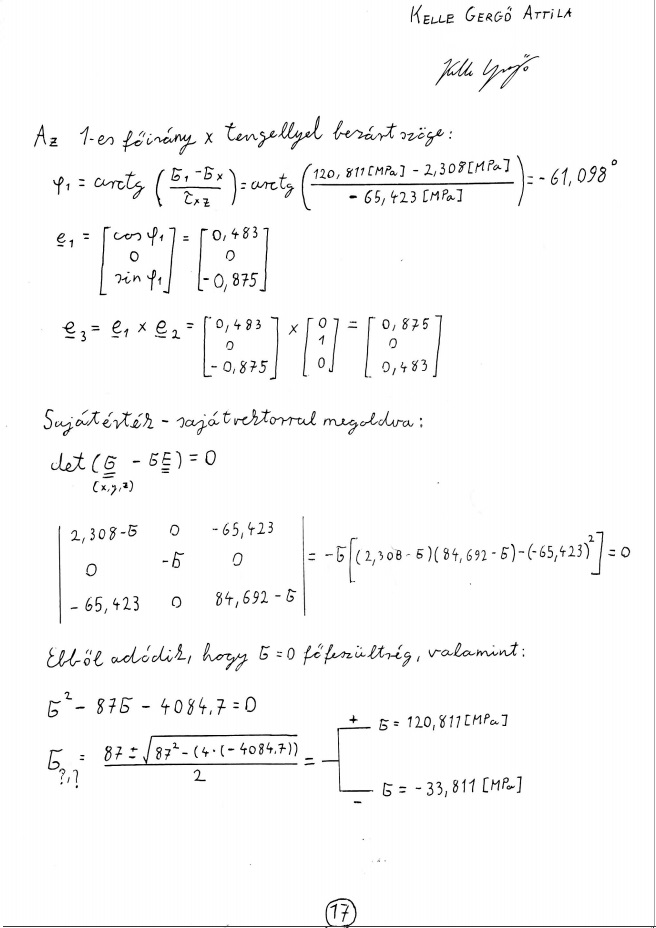 KELLE GERGŐ ATTILA
Kelle Gergő
Az 1-es főirány x tengellyel bezárt szöge:
φ₁ = arctg (σ₁ - σx / τxz) = arctg (120,811 [MPa] - 2,308 [MPa] / - 65,423 [MPa]) = - 61,098°
e₁ = [cos φ₁ 0 sin φ₁] = [0,483 0 -0,875]
e₃ = e₁ × e₂ = [0,483 0 -0,875] × [0 1 0] = [0,875 0 0,483]
Sajátérték - sajátvektorral megoldva:
det (σ - σE) = 0
(x,y,z)
| 2,308-σ 0 -65,423 |
| 0 -σ 0 | = -σ[(2,308 - σ)(84,692 - σ)-(-65,423)²] = 0
| -65,423 0 84,692 - σ |
Ebből adódik, hogy σ=0 főfeszültség, valamint:
σ² - 87σ - 4084.7 = 0
σ?,? = 87 ± √(87² - (4·(-4084.7))) / 2 =
+ σ = 120,811 [MPa]
- σ = -33,811 [MPa]
17